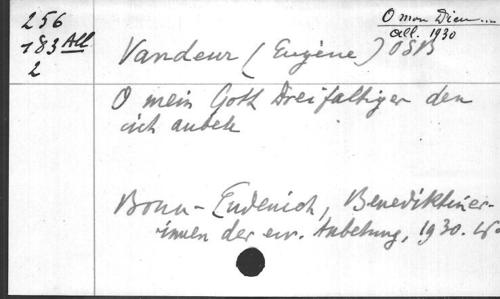 256
183 All
2
O mon Dieu....
all. 1930
Vandeur (Eugène) OSB
O mein Gott Dreifaltiger den
ich anbete
Bonn-Endenich, Benediktiner-
innen der ew. Anbetung, 1930.